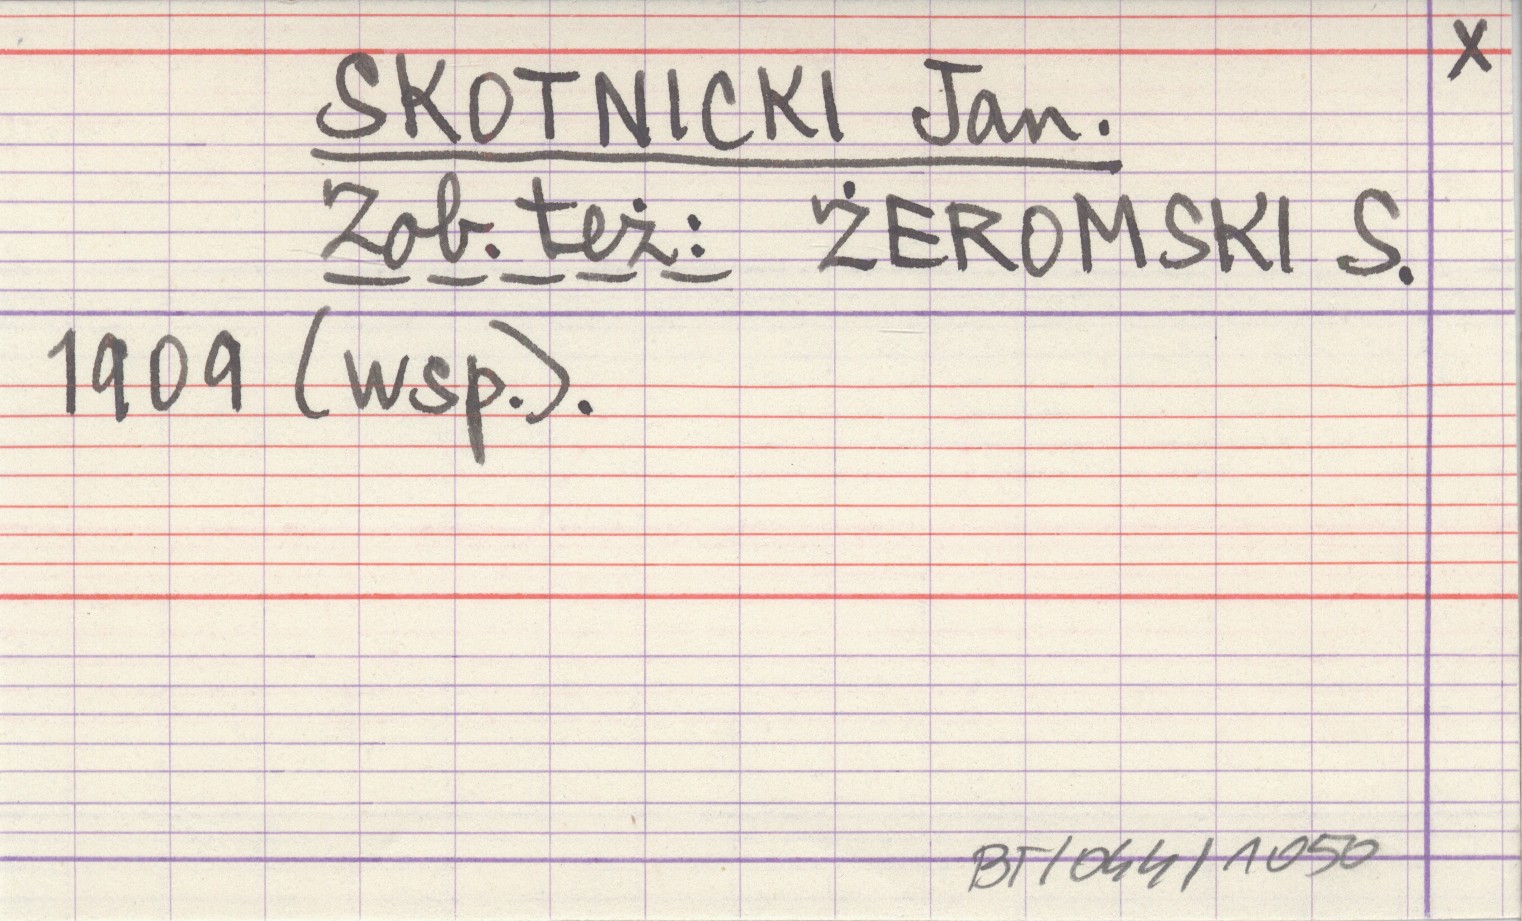 X
SKOTNICKI Jan.
Zob. też: ŻEROMSKI S.
1909 (wsp.).
BT/044/1050